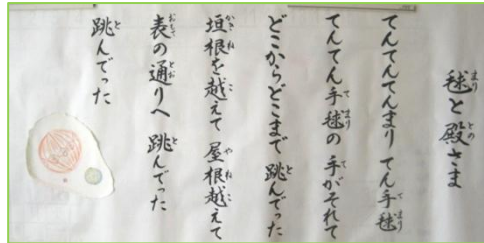 毬と殿さま
てんてんてんまり てん手毬
てんてん手毬の 手がそれて
どこからどこまで 跳んでった
垣根を越えて 屋根越えて
表の通りへ 跳んでった
跳んでった